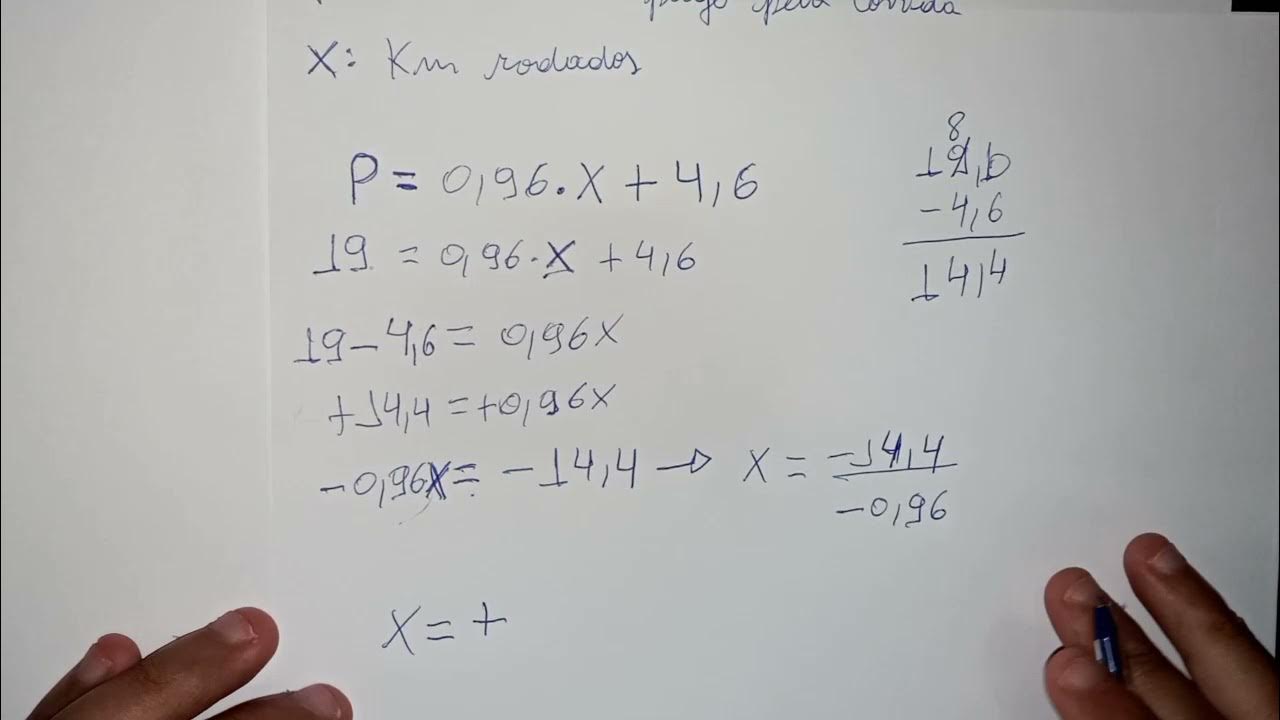 pago pela corrida
X: Km rodados
P = 0,96.X + 4,6
19 = 0,96.X + 4,6
19 - 4,6 = 0,96X
+14,4 = +0,96X
-0,96X = -14,4 → X = -14,4
-0,96
X = +
8
19,0
- 4,6
14,4